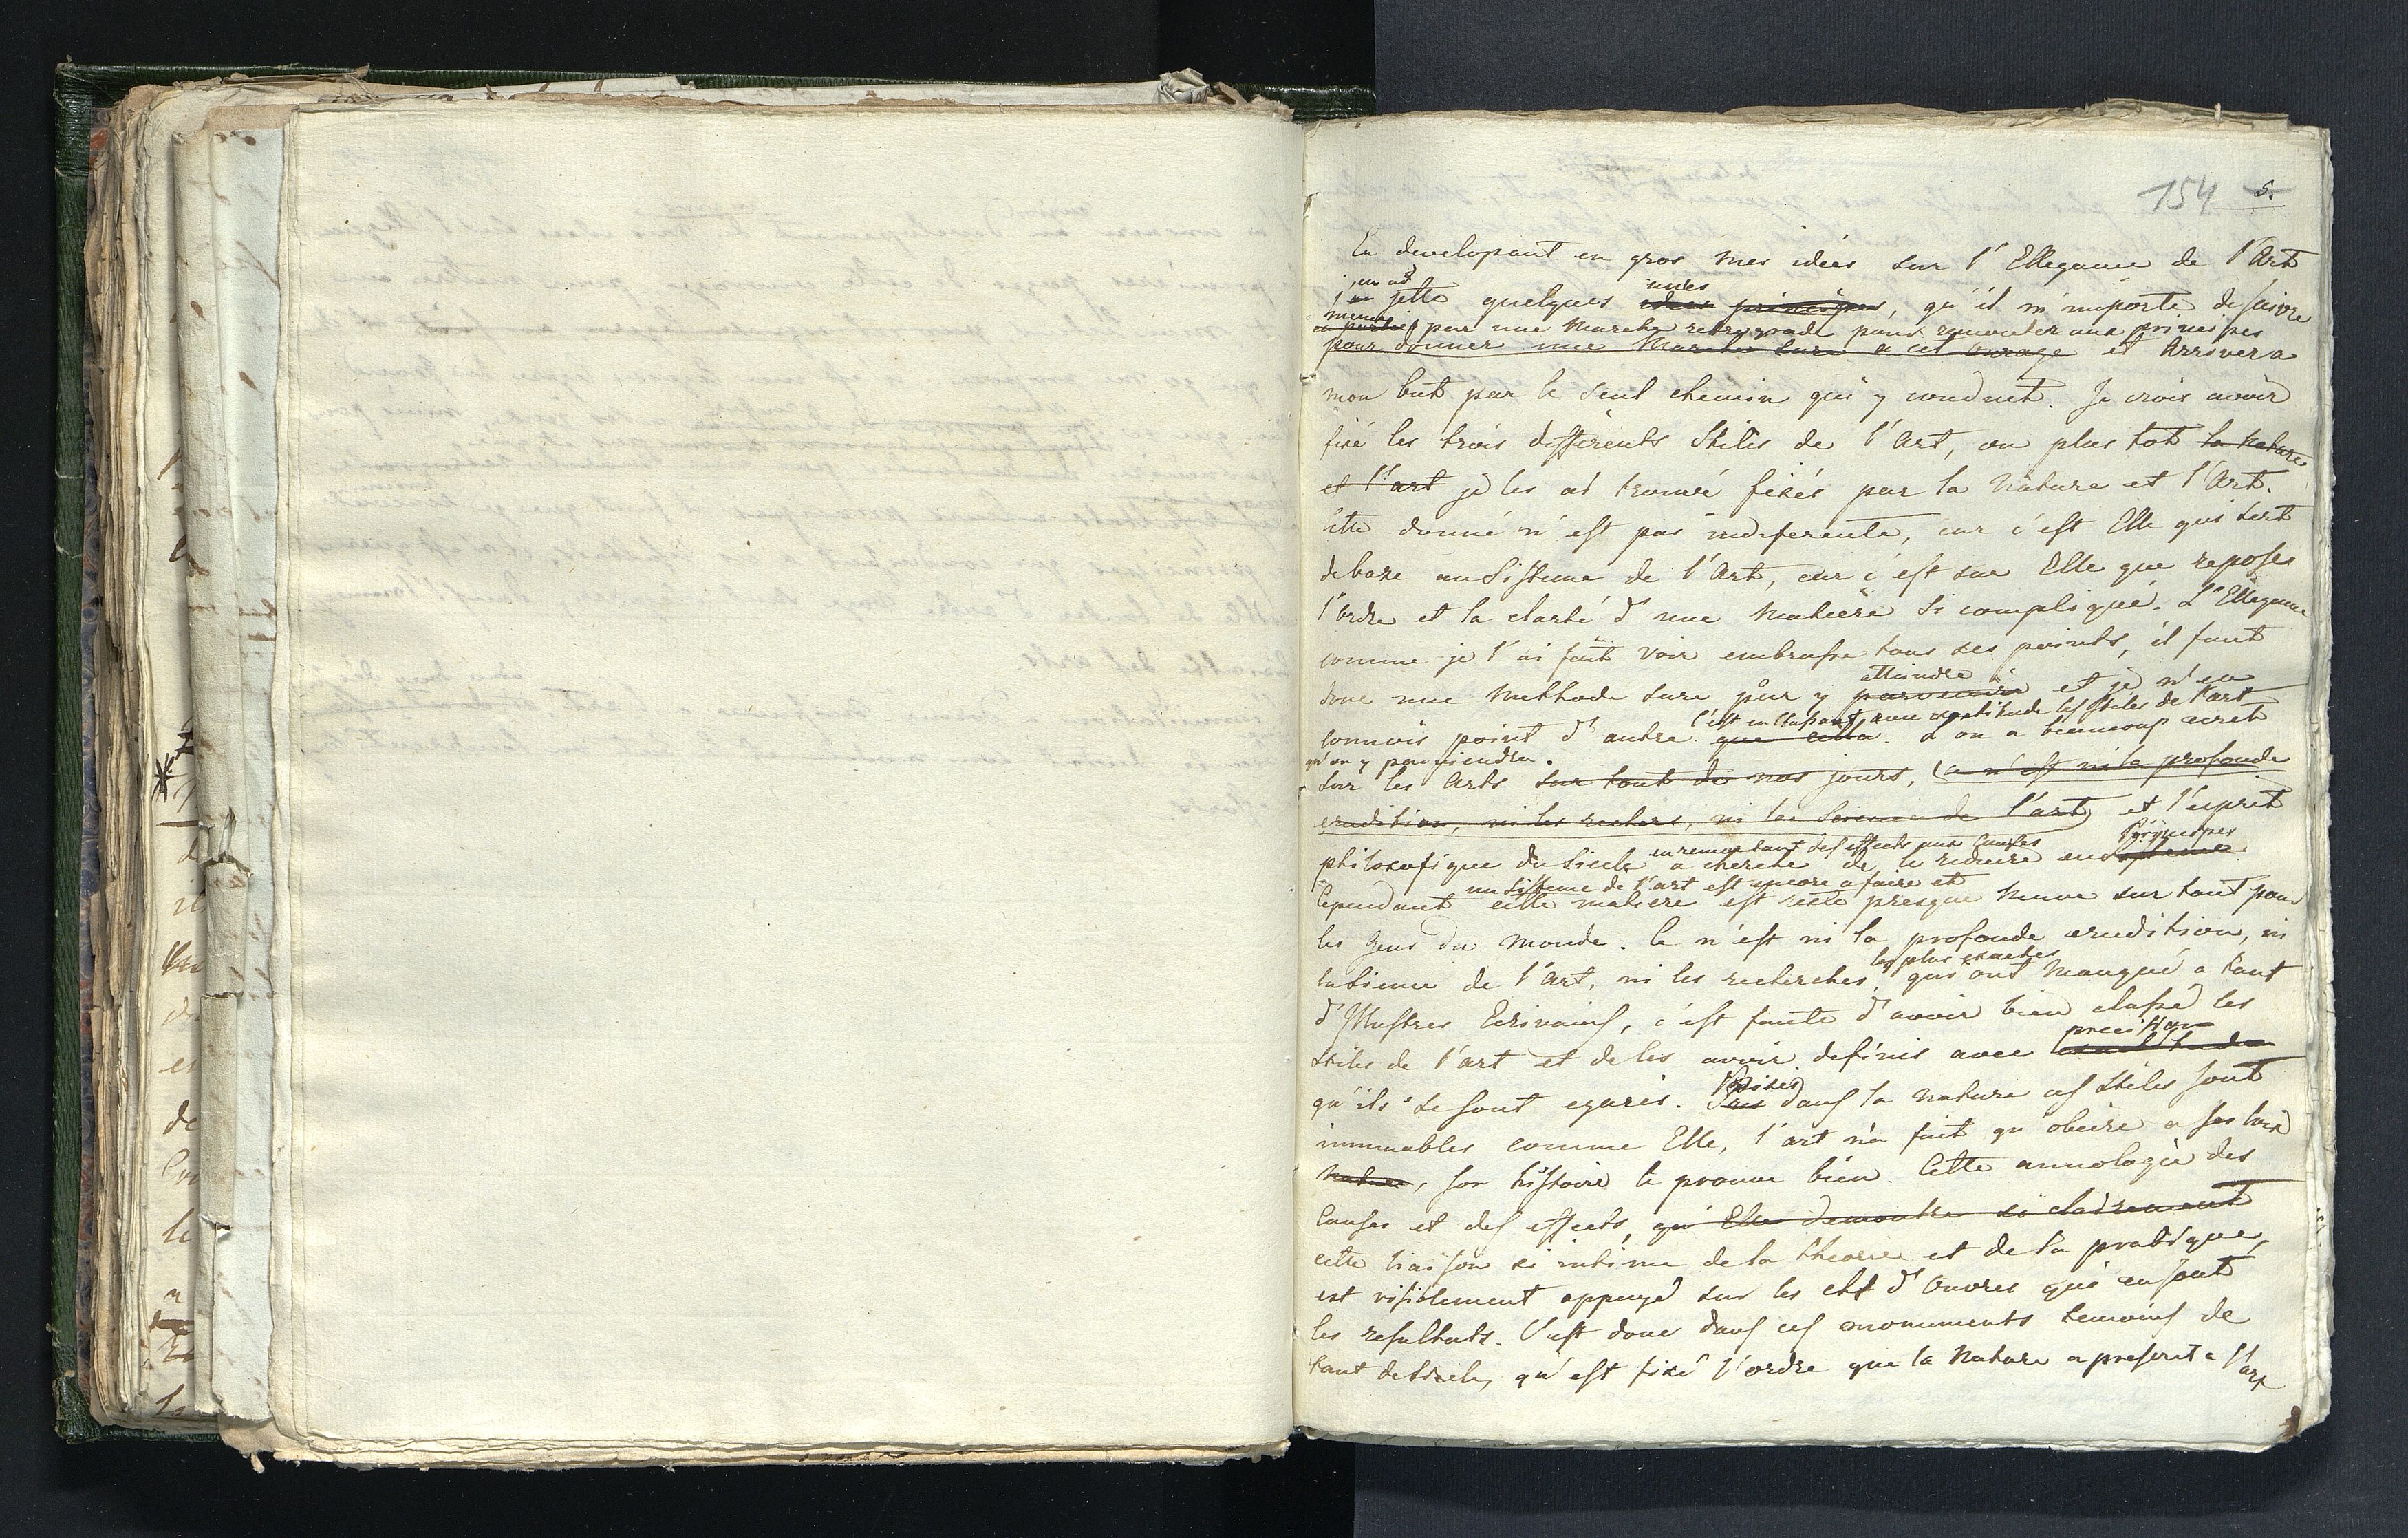 154 5.
En developant en gros mes idées sur l'Ellegance de l'Art
j'en ai
jetté quelques unes idées principes, qu'il m'importe de suivre
par une Marche retrograde pour remonter aux principes
pour donner une Marche sure a cet ouvrage et Arriver a
mon but par le seul chemin qui y conduit. Je crois avoir
fixé les trois differents Stiles de l'Art, ou plus tot la Nature
et l'art je les ai trouvé fixés par la Nature et l'Art.
cette donné n'est pas indiferente, car c'est Elle qui sert
de base au Sisteme de l'Art, car c'est sur Elle que repose
l'Ordre et la clarté d'une Matiere si compliqué. L'Ellegance
comme je l'ai fait voir embrasse tous ses points, il faut
atteindre
donc une Methode sure pour y parvenire et je n'en
c'est en classant avec exactitude les Stiles de l'art
connois point d'autre que cella. L'on a beaucoup ecrit
qu'on y parviendra.
sur les Arts sur tout de nos jours, (ce n'est ni la profonde
erudition, ni les rechers, ni la Science de l'art) et l'esprit
en remontant des effects aux Causes Prinspes
philosofique du Siecle a cherché de le reduire en
un Sisteme de l'art est encore a faire et
Cependant cette matiere est resté presque Neuve sur tout pour
les Gens du Monde. Ce n'est ni la profonde erudition, ni
les plus exactes
la Sience de l'Art, ni les recherches, qui ont Manqué a tant
d'Illustres Ecrivains, c'est faute d'avoir bien classé les
precision
Stiles de l'art et de les avoir definis avec exactitude
Puisés
qu'ils se sont egarés. dans la Nature ces Stiles sont
immuables comme Elle, l'art n'a fait qu'obeire a ses loix
Nature, son histoire le prouve bien. Cette annologie des
Causes et des effects, qu'Elle demontre si clairement
cette liaison si intime de la theorie et de la pratique,
est visiblement appuyé sur les chef d'Ouvres qui en sont
les resultats. C'est donc dans ces monuments temoins de
tant de Siecle, qu'est fixé l'ordre que la Nature a prescrit a l'art